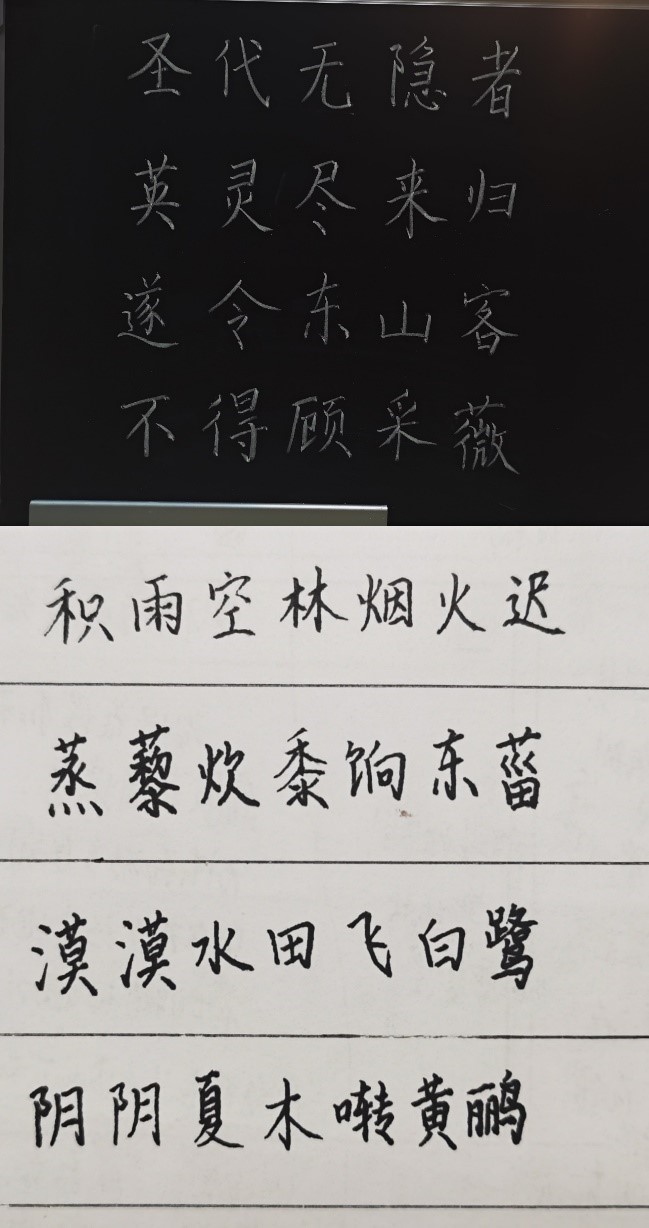 圣代无隐者
英灵尽来归
遂令东山客
不得顾采薇
积雨空林烟火迟
蒸藜炊黍饷东菑
漠漠水田飞白鹭
阴阴夏木啭黄鹂